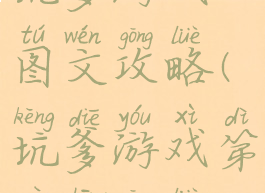 tú wén gōng lüè
图文攻略(
kēng diē yóu xì dì
坑爹游戏第